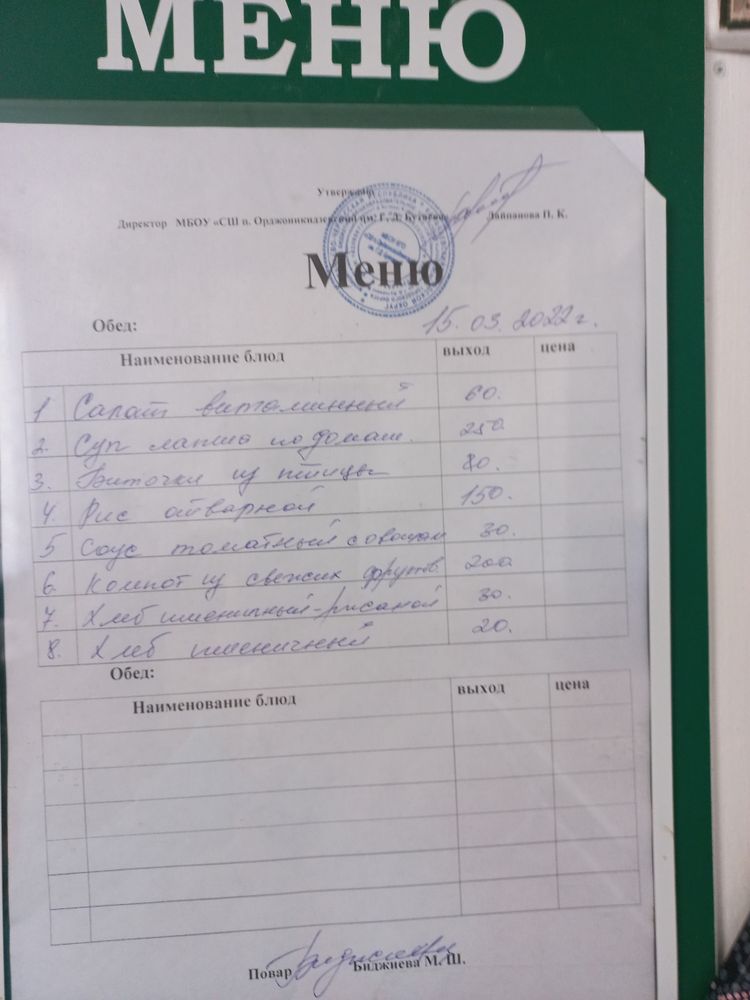 МЕНЮ
Утверждаю
Директор МБОУ «СШ п. Орджоникидзевский им. Г. Д. Бутаева» Лайпанова П. К.
Меню
Обед: 15.03.2022г.
Наименование блюд выход цена
1 Салат витаминный 60.
2. Суп лапша по домаш. 250
3. Биточки из птицы 80.
4. Рис отварной 150.
5 Соус томатный с овощам 30.
6. Компот из свежих фруктов 200
7. Хлеб пшеничный-ржаной 30.
8. Хлеб пшеничный 20.
Обед:
Наименование блюд выход цена
Повар Биджиева М. Ш.